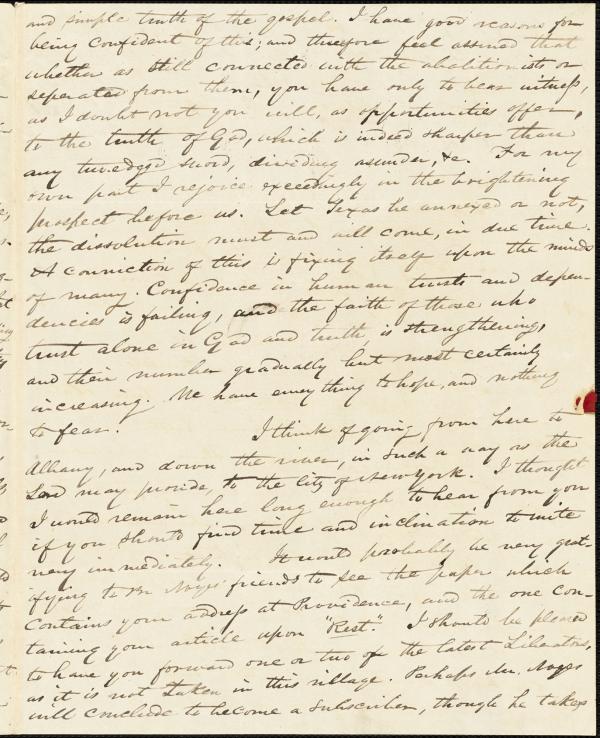 and simple truth of the gospel. I have good reasons for
being confident of this; and therefore feel assured that
whether as still connected with the abolitionists or
seperated from them, you have only to bear witness,
as I doubt not you will, as opportunities offer,
to the truth of God, which is indeed sharper than
any two-edged sword, dividing asunder, &c. For my
own part I rejoice exceedingly in the brightening
prospect before us. Let Texas be annexed or not,
the dissolution must and will come, in due time.
A conviction of this is fixing itself upon the minds
of many. Confidence in human trusts and depen-
dencies is failing, and the faith of those who
trust alone in God and truth, is strengthening,
and their number gradually but most certainly
increasing. We have everything to hope, and nothing
to fear. I think of going from here to
Albany, and down the river, in such a way as the
Lord may provide, to the city of New York. I thought
I would remain here long enough to hear from you
if you should find time and inclination to write
very immediately. It would probably be very grat-
ifying to Mr Noyes' friends to see the paper which
contains your address at Providence, and the one con-
taining your article upon "Rest". I should be pleased
to have you forward one or two of the latest Liberators,
as it is not taken in this village. Perhaps Mr. Noyes
will conclude to become a subscriber, though he takes